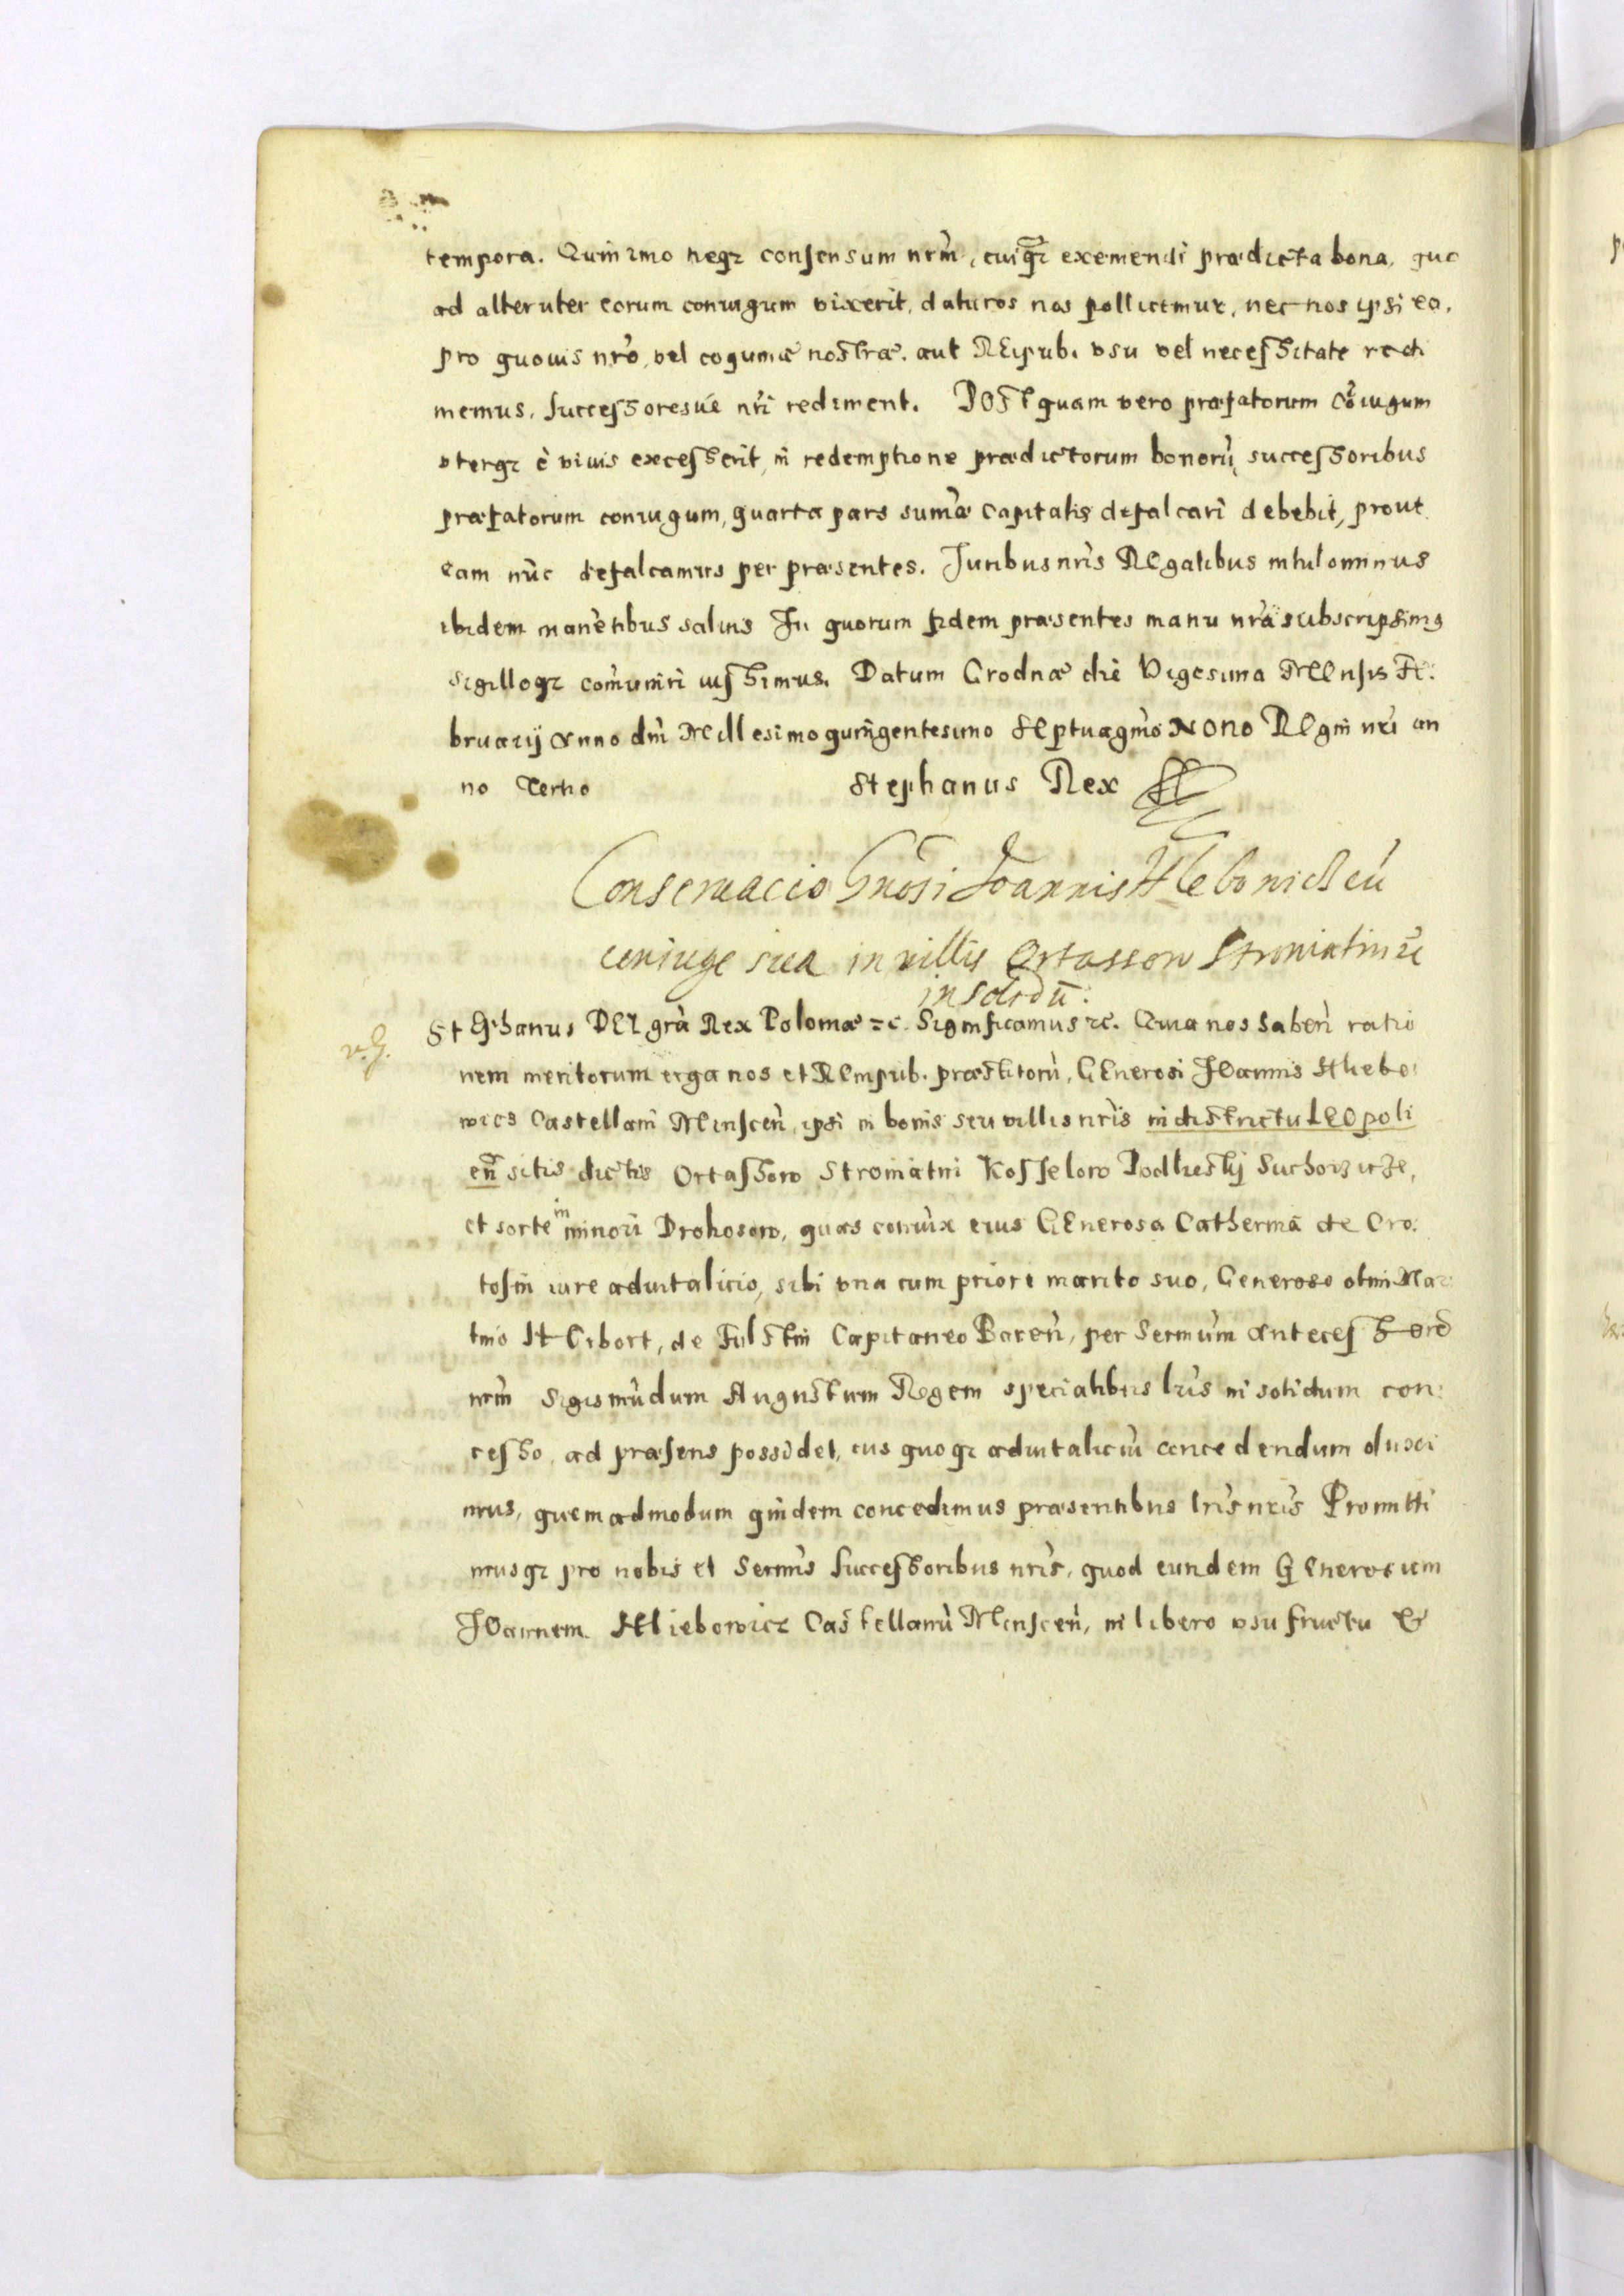 tempora. Quin imo neqz consensum nrm̄, cuiqz eximendi prædicta bona, quo
ad alteruter eorum coniugum vixerit, daturos nos pollicemur, nec nos ipsi ea,
pro quouis nrō, vel coqumæ nostræ. aut Reipub. vsu vel necessitate redi
memus, successoresue nrī rediment. Postquam vero præfatorum cōiugum
vterqz è viuis excesserit, in redemptione prædictorum bonorū, successoribus
præfatorum coniugum, quarta pars sum̄æ capitalis defalcari debebit, prout
eam nūc defalcamus per præsentes. Juribus nrīs Regalibus nihilominus
ibidem manētibus saluis In quorum fidem præsentes manu nrā subscripsimus
sigilloqz com̄uniri iussimus. Datum Grodnæ die Vigesima Mensis Fe:
bruarij Anno dnī Millesimo quingentesimo Septuagmō Nono Regni nrī an
no Tertio Stephanus Rex
Conseruacio Gnōsi Joannis Hlebowicz cū
coniuge sua in villis Ortassow Stroniatin zc
in solidū:
Stephanus DEI grā Rex Poloniæ zc. Significamus zc. Quia nos haben̄ ratio
nem meritorum erga nos et Rempub. præstitorū, GEnerosi Joannis Hlebo:
wics Castellani Minscen̄, ipsi in bonis seu villis nrīs in districtu LEopoli
en̄ sitis dictis Ortassow Stroniatin Kosselow Podliesky Suchowicze,
et sorte in minori Drohosow, quas coniux eius GEnerosa Catherinā de Cro:
tosin iure aduitalicio, sibi vna cum priori marito suo, Generoso olim Mar
tino H Erbort, de Fulstin Capitaneo Baren̄, per Sermūm Antecessorē
nrm̄ Sigismūdum Augustum Regem specialibus lrīs in solidum con:
cesso, ad præsens possidet, ius quoqz aduitaliciū concedendum duxi
mus, quemadmodum quidem concedimus præsentibus lrīs nrīs Promitti
musqz pro nobis et Sermīs successoribus nrīs, quod eundem GEnerosum
Joannem Hliebowicz Castellanū Minscen̄, in libero vsu fructu &